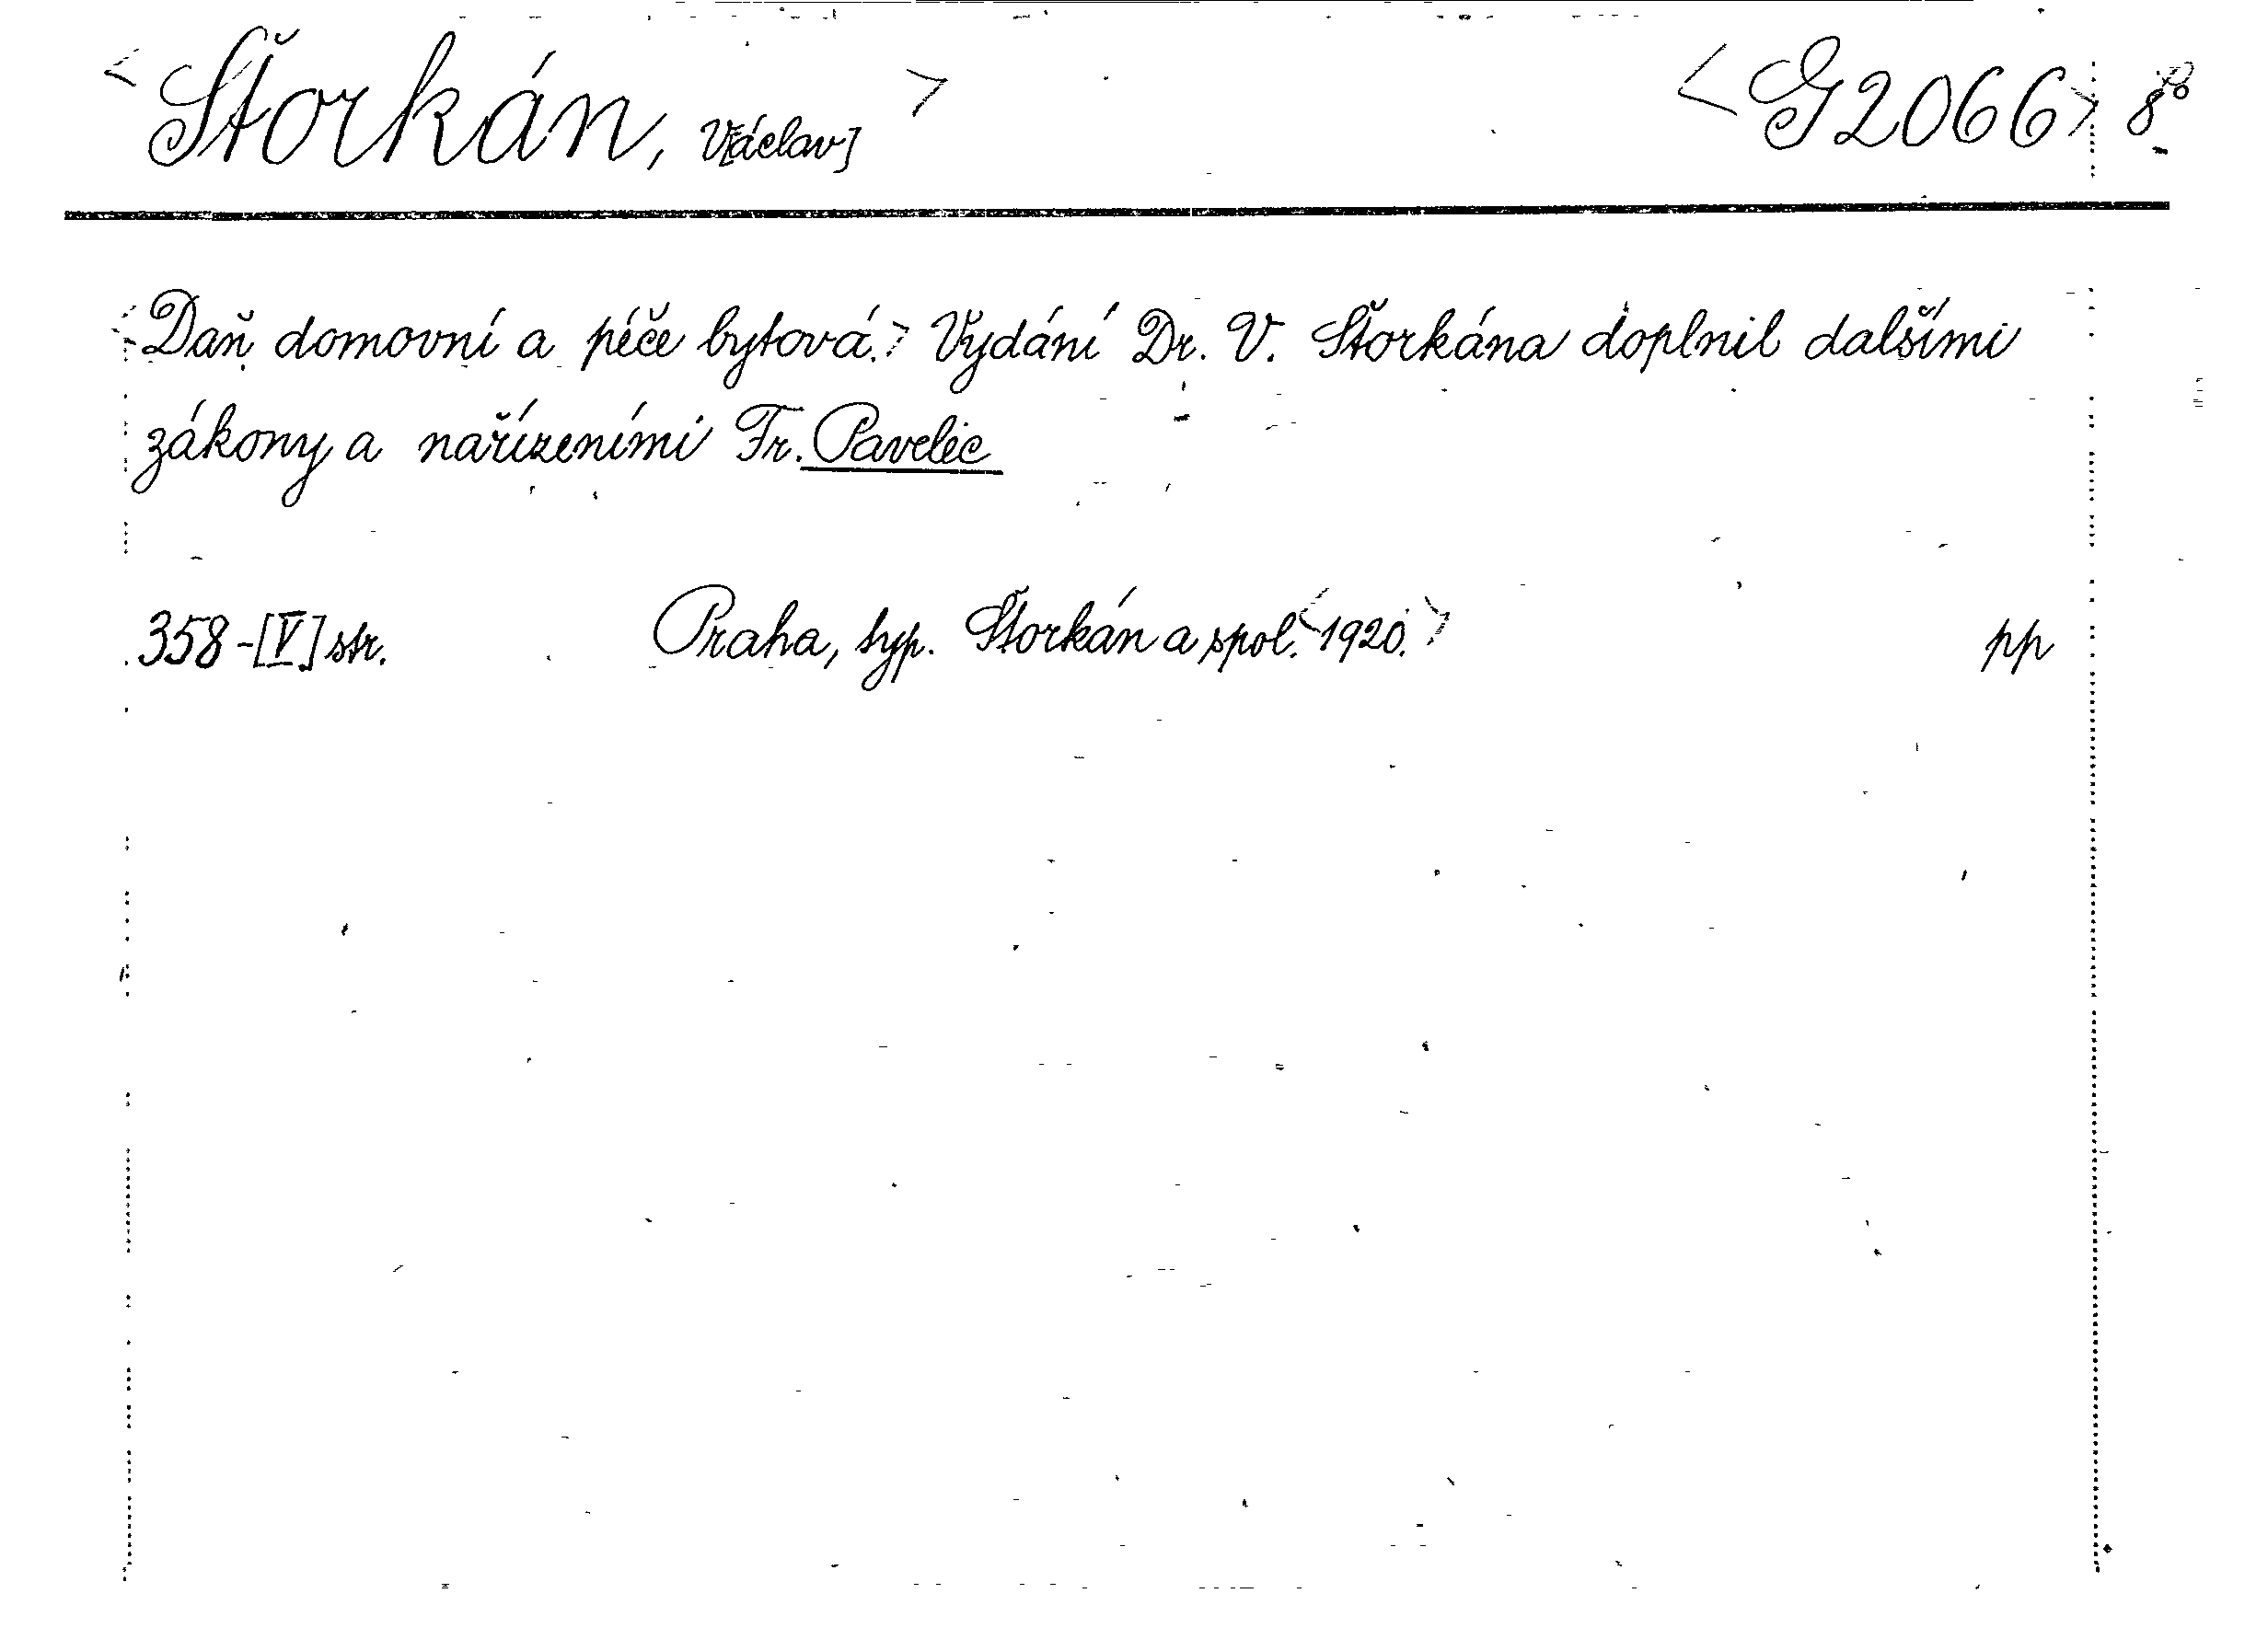 <Štorkán, V[áclav]> <G 2066> 8°
<Daň domovní a péče bytová.> Vydání Dr. V. Štorkána doplnil dalšími
zákony a nařízeními Fr. Pavelec
358-[V] str. Praha, typ. Štorkán a spol. <1920.> pp